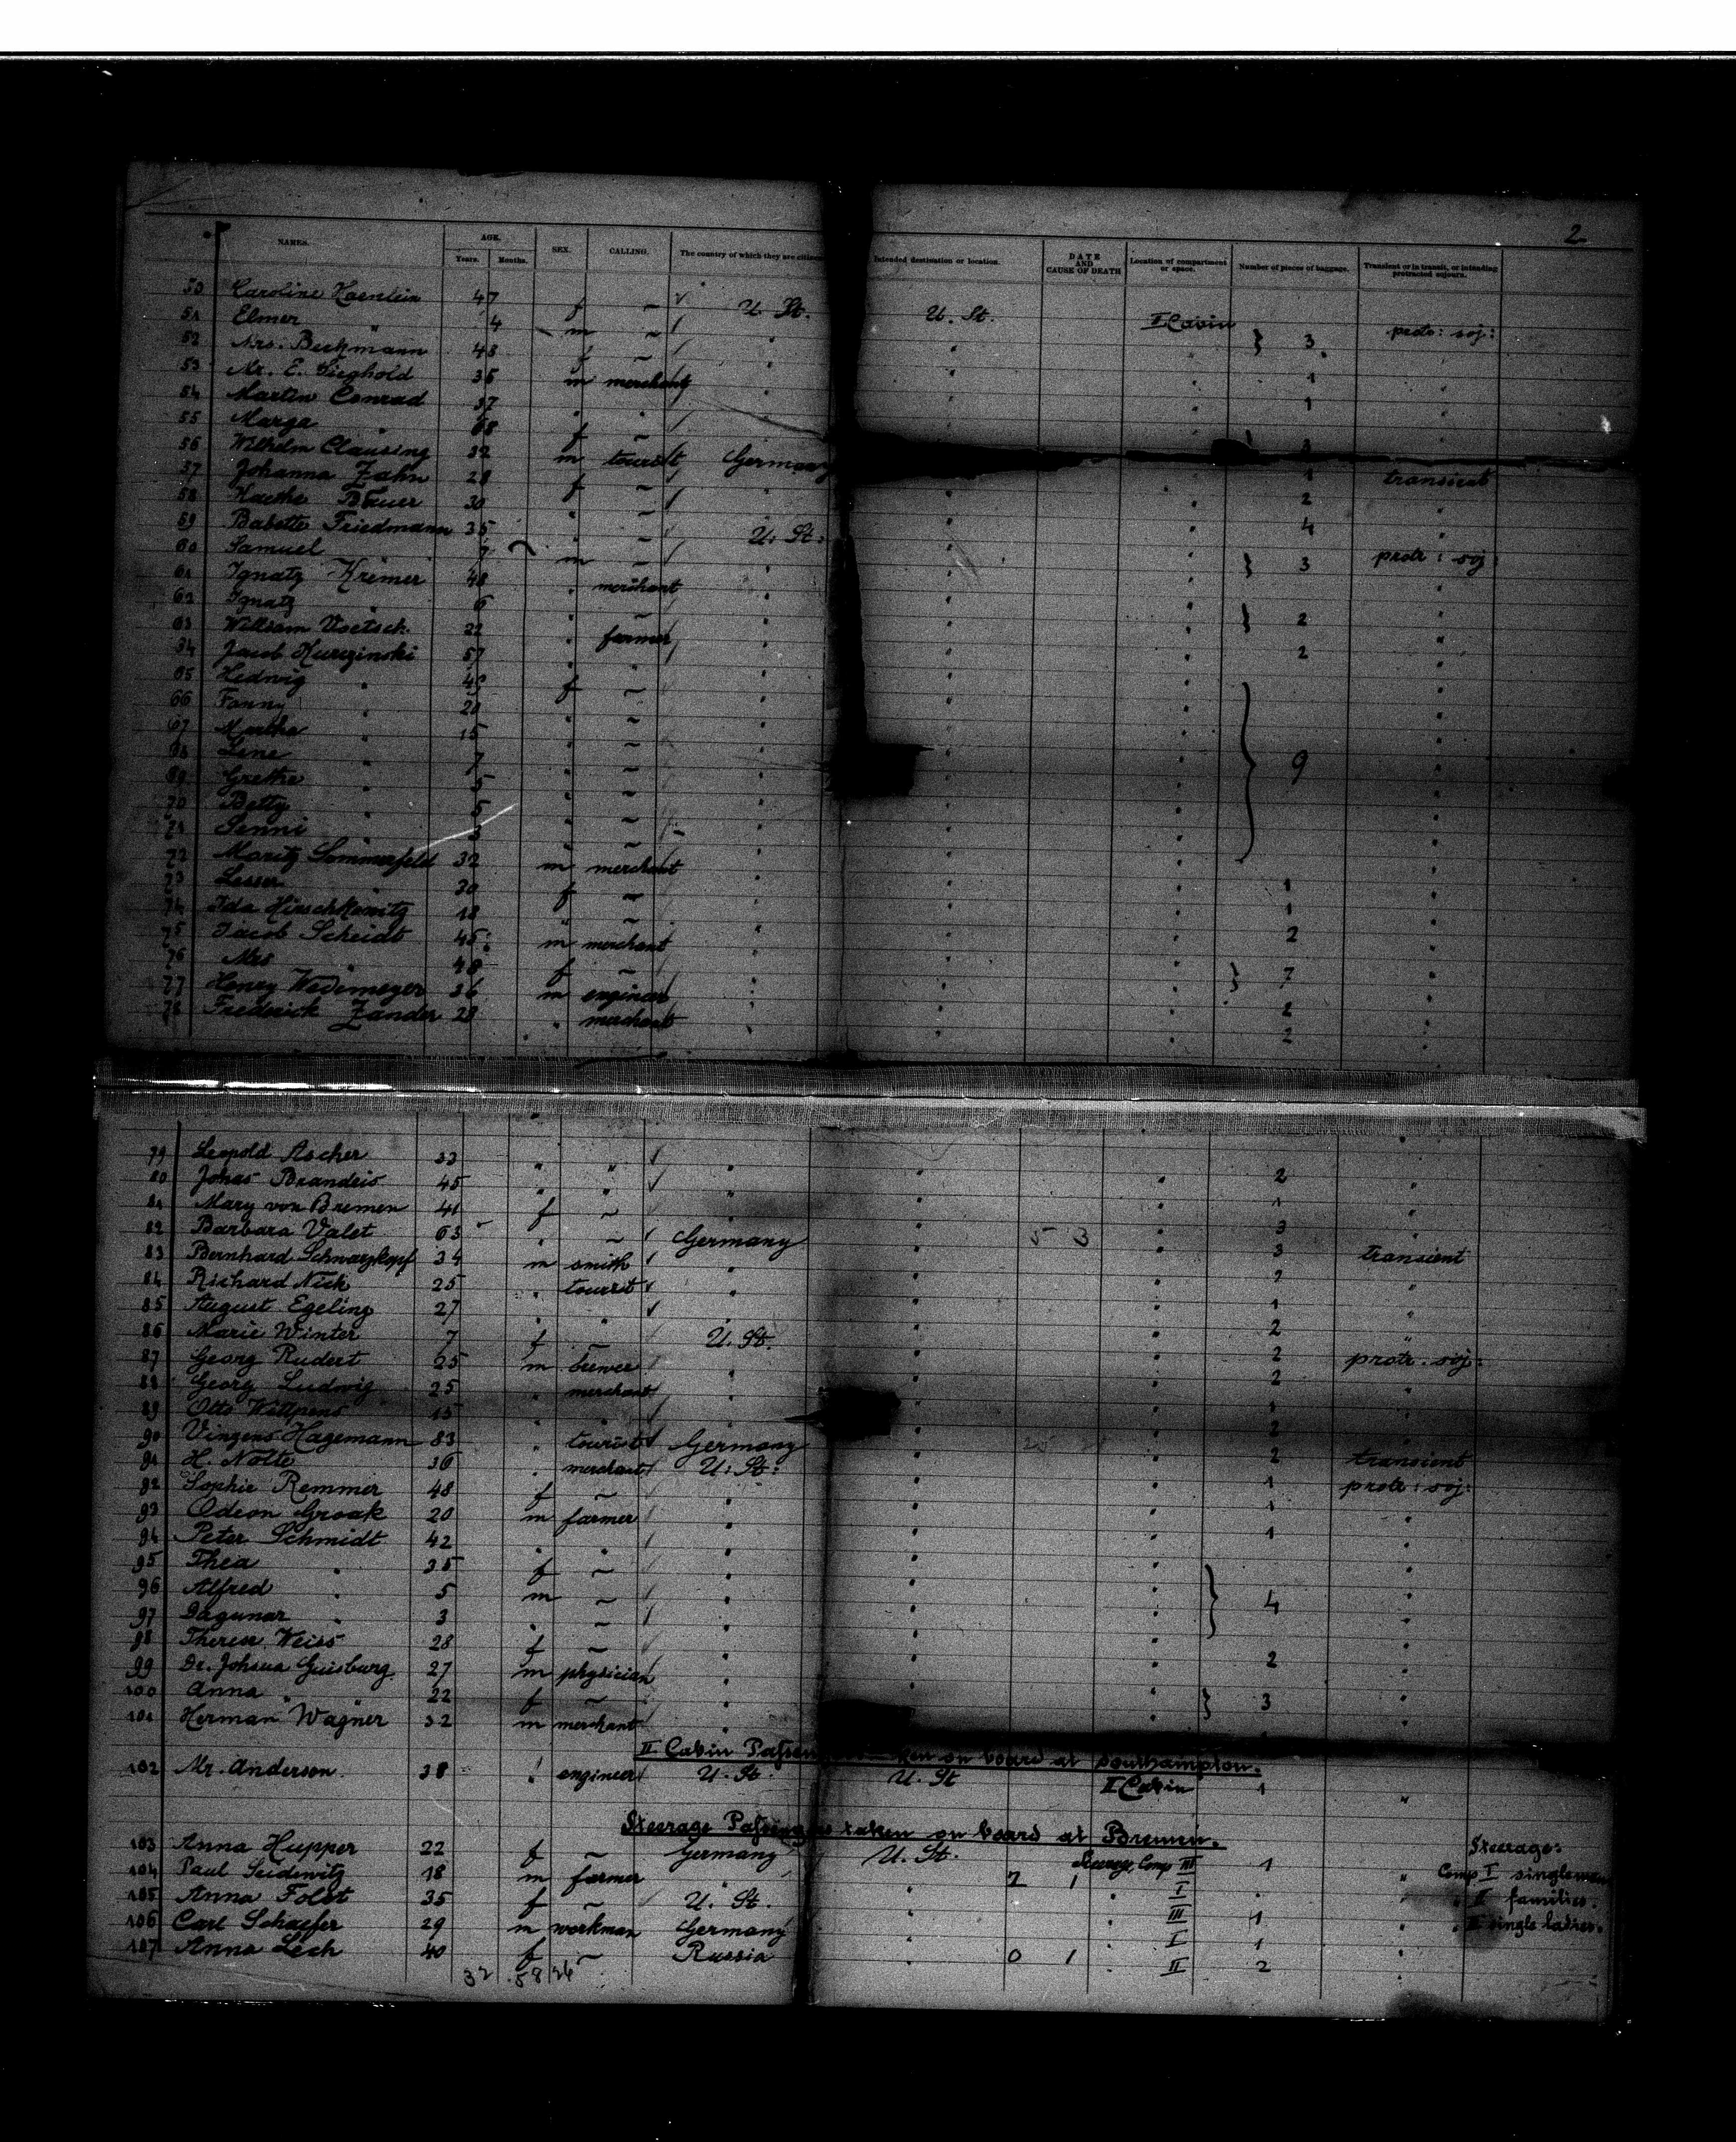 2
NAMES. AGE. Years. Months. SEX. CALLING. The country of which they are citizens Intended destination or location. DATE AND CAUSE OF DEATH Location of compartment or space. Number of pieces of baggage. Transient or in transit, or intending protracted sojourn.
50 Caroline Haenlein 47 f ~ U. St. U. St. II Cabin protr: soj:
51 Elmer " 4 m ~ " " 3
52 Mrs. Beckmann 48 f ~ " "
53 Mr. E. Sieghold 36 m merchant " " 1
54 Martin Conrad 37 " " " 1
55 Marga " f ~
56 Wilhelm Clausing 32 m tourist Germany 3
57 Johanna Zahn 28 f ~ " " 1 transient
58 Kaethe Bauer 30 " ~ " " 2 "
59 Babette Friedmann 35 " ~ U. St: " 4
60 Samuel 7 m ~ " " 3 protr: soj:
61 Ignatz Kremer 48 " merchant " "
62 Ignatz " 6 " ~ " " 2 "
63 William Voetsch. 22 " farmer " " 2 "
64 Jacob 57 " " " " "
65 Hedwig " f ~ " " "
66 Fanny " 20 " ~ " " "
67 Martha " 15 " ~ " " "
68 Lene " 7 " ~ " " 9 "
69 Grethe " 5 " ~ " " "
70 Betty " 5 " ~ " " "
71 " 3 " ~ " " "
72 Moritz Sommerfeld 32 m merchant " " "
73 Lesser 30 f ~ " " 1 "
74 Ida Hirschkowitz 18 " ~ " " 1 "
75 Jacob Scheidt 45 m merchant " " 2 "
76 Mrs " 48 f ~ " " 7 "
77 Henry Wedemeyer 36 m engineer " " 2 "
78 Frederick Zander 28 " merchant " " 2 "
79 Leopold Ascher 33 " " " " 2 "
80 Johas Brandeis 45 " " " " 1 "
81 Mary von Bremen 41 f ~ " " 3 "
82 Barbara Valet 63 " ~ Germany " 3 transient
83 Bernhard Schwarzkopf 34 m smith " " 2 "
84 Richard Nick 25 " tourist " " 1 "
85 August Egeling 27 " " " " 2 "
86 Marie Winter 7 f ~ U. St. " 2 protr. soj:
87 Georg Rudert 25 m brewer " " 2 "
88 Georg Ludwig 25 " merchant " " 1 "
89 Otto 15 " " " 2 "
90 Vinzens Hagemann 83 " tourist Germany " 2 transient
91 H. Nolte 36 " merchant U. St: " 1 protr: soj:
92 Sophie Remmer 48 f ~ " " 1 "
93 Odeon Groak 20 m farmer " " 1 "
94 Peter Schmidt 42 " " " " "
95 Thea " 35 f ~ " " "
96 Alfred " 5 m ~ " " 4 "
97 Dagunar " 3 " ~ " " "
98 Therese Weiss 28 f ~ " " 2 "
99 Dr. Johsua Guisburg 27 m physician " "
100 Anna " 22 f ~ " " 3 "
101 Herman Wagner 32 m merchant "
II Cabin Passengers taken on board at Southampton.
102 Mr. Anderson 38 " engineer U. St. U. St II Cabin 1 "
Steerage Passengers taken on board at Bremen.
Steerage:
103 Anna Hupper 22 f ~ Germany U. St. Steerage, Comp III 1 " Comp I singlemen
104 Paul Seidewitz 18 m farmer " " 2 1 " I " " " II families.
105 Anna Folst 35 f ~ U. St. " " III 1 " " III single ladies.
106 Carl Schaefer 29 m workman Germany " " I 1 "
107 Anna Lech 40 f ~ Russia " 0 1 " II 2 "
32 58 26